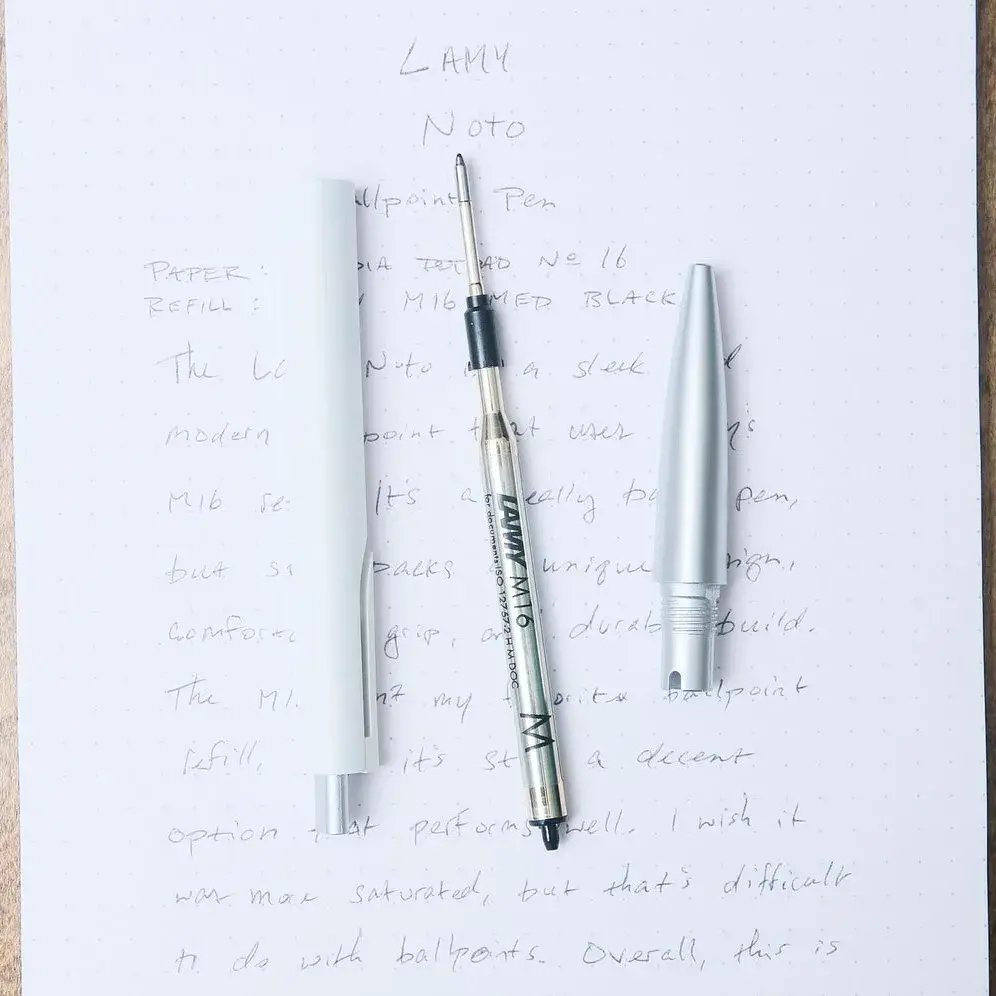 LAMY
Noto
llpoint Pen
PAPER: DIA DOTPAD Nº 16
REFILL: M16 MED BLACK
The La Noto a sleek d
modern point that uses y's
M16 re It's a really ba pen,
but s packs unique ign,
comforta grip, an durab build.
The M1 n't my orite ballpoint
refill, it's st a decent
option at performs well. I wish it
was more saturated, but that's difficult
to do with ballpoints. Overall, this is
LAMY M16
for documents ISO 12757-2 H M DOC
M